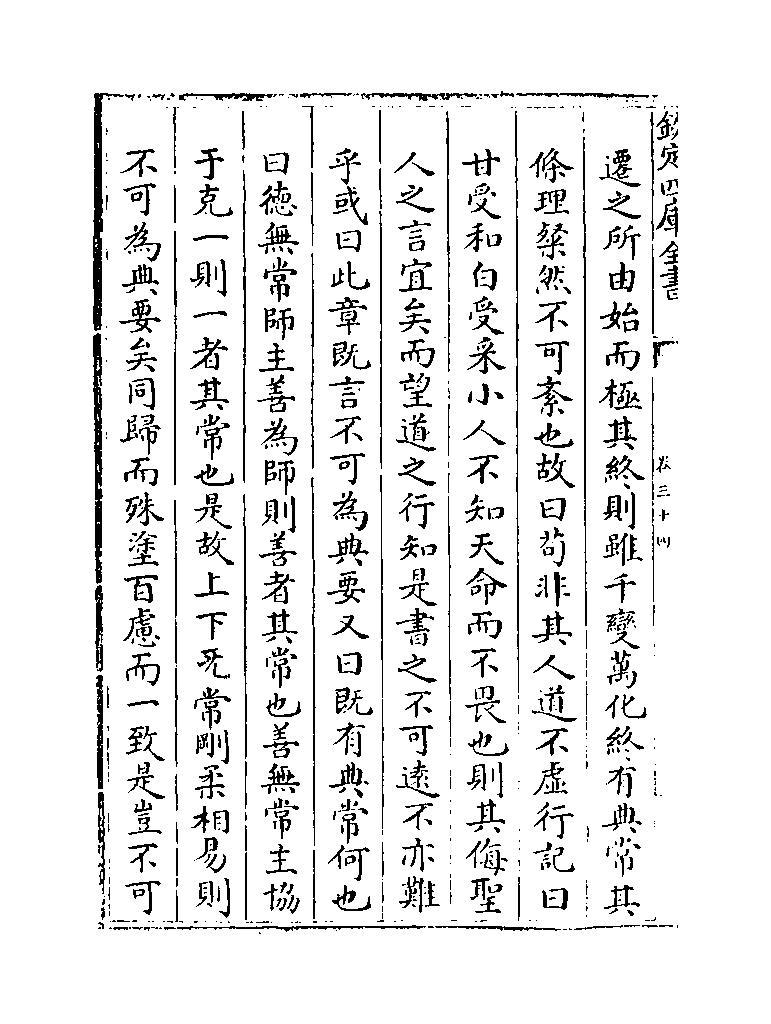 欽定四庫全書
卷三十四
遷之所由始而極其終則雖千變萬化終有典常其
條理粲然不可紊也故曰苟非其人道不虛行記曰
甘受和白受采小人不知天命而不畏也則其侮聖
人之言宜矣而望道之行知是書之不可遠不亦難
乎或曰此章既言不可為典要又曰既有典常何也
曰德無常師主善為師則善者其常也善無常主協
于克一則一者其常也是故上下旡常剛柔相易則
不可為典要矣同歸而殊塗百慮而一致是豈不可